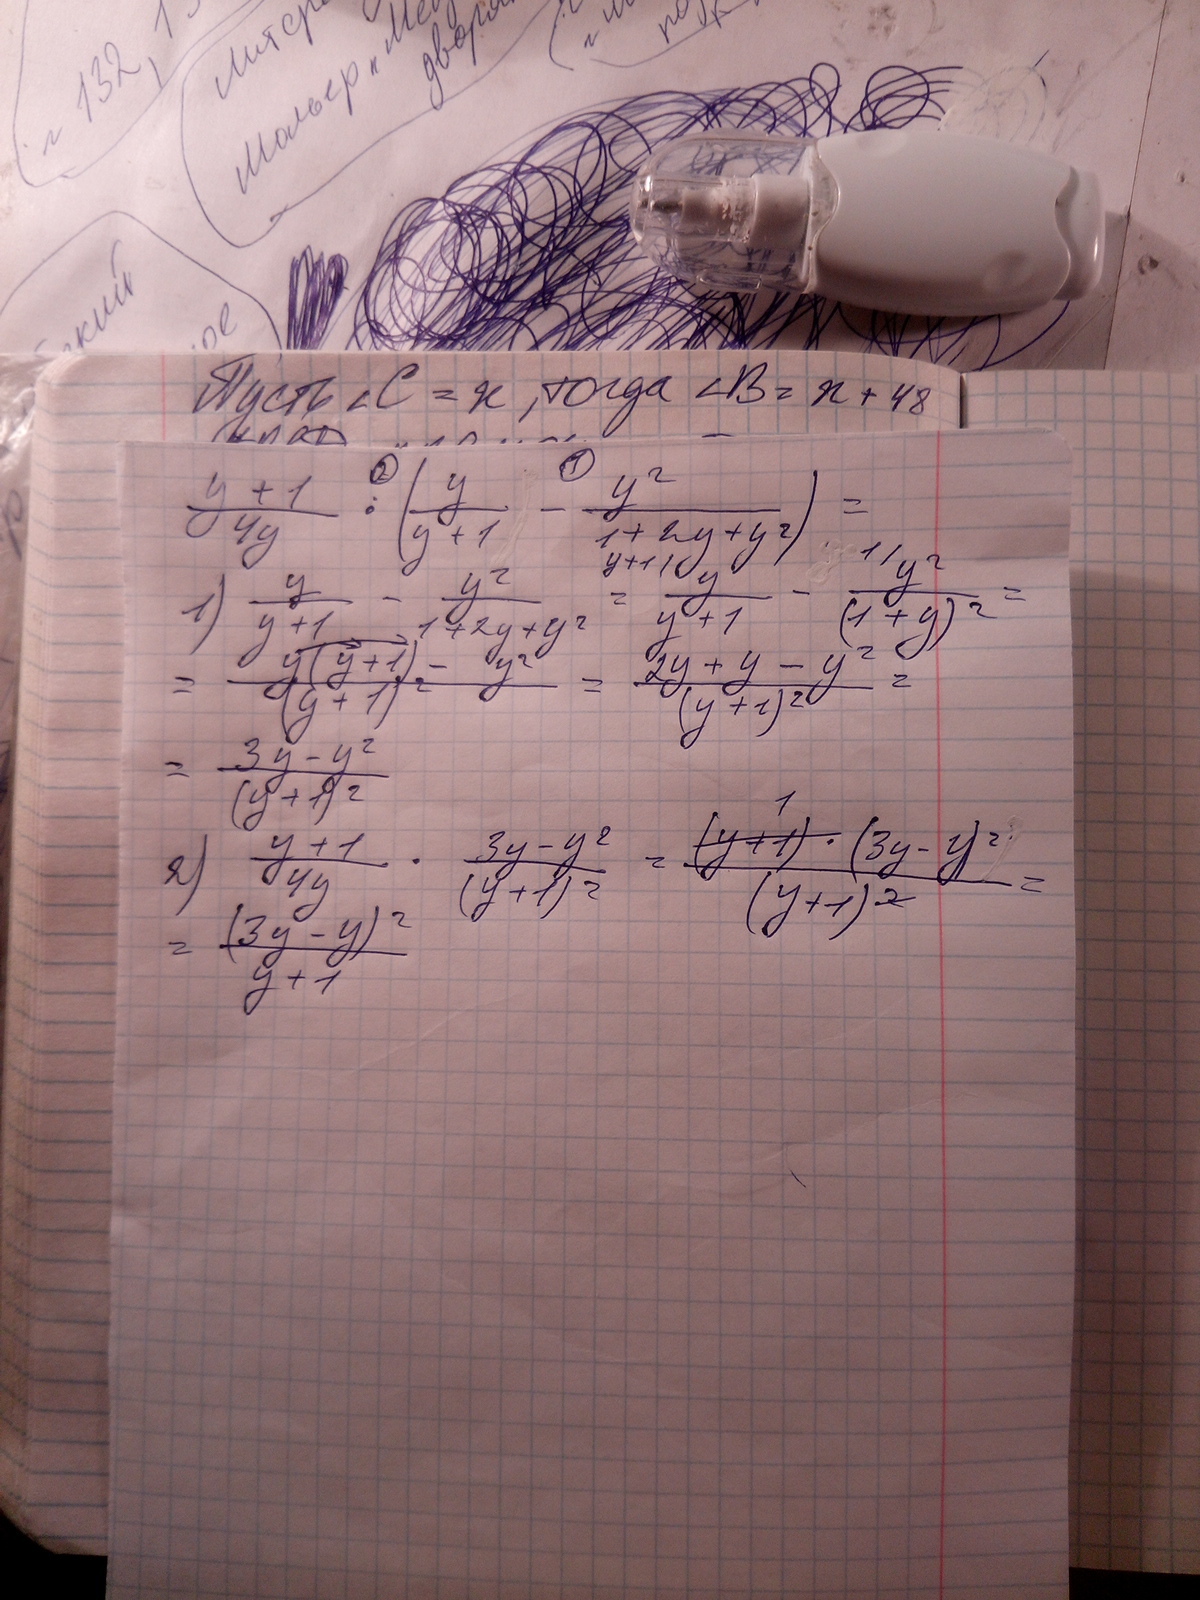 132,
Мольер "Ме
Пусть ∠C = x, тогда ∠B = x + 48
(y + 1)/(4y) : (y/(y + 1) - y²/(1 + 2y + y²)) =
1) y/(y + 1) - y²/(1 + 2y + y²) = y/(y + 1) - y²/(1 + y)² =
= (y(y + 1) - y²)/(y + 1)² = (2y + y - y²)/(y + 1)² =
= (3y - y²)/(y + 1)²
2) (y + 1)/(4y) · (3y - y²)/(y + 1)² = ((y + 1) · (3y - y)²)/(y + 1)² =
= (3y - y)²/(y + 1)